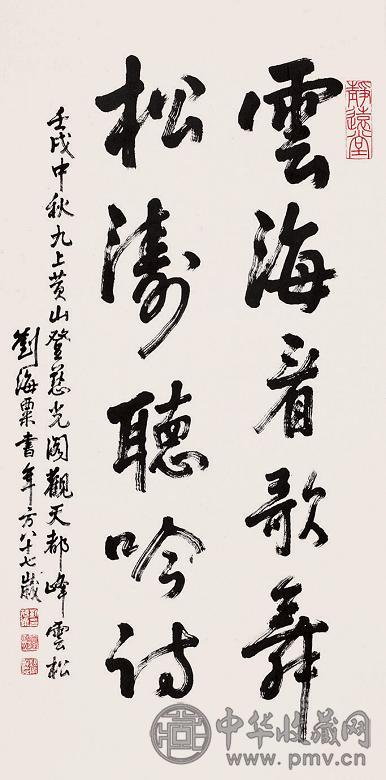 靜遠堂
雲海看歌舞
松濤聽吟诗
壬戌中秋九上黄山登慈光阁觀天都峰雲松
劉海粟書年方八十七歲
中华收藏网
www.pmv.cn